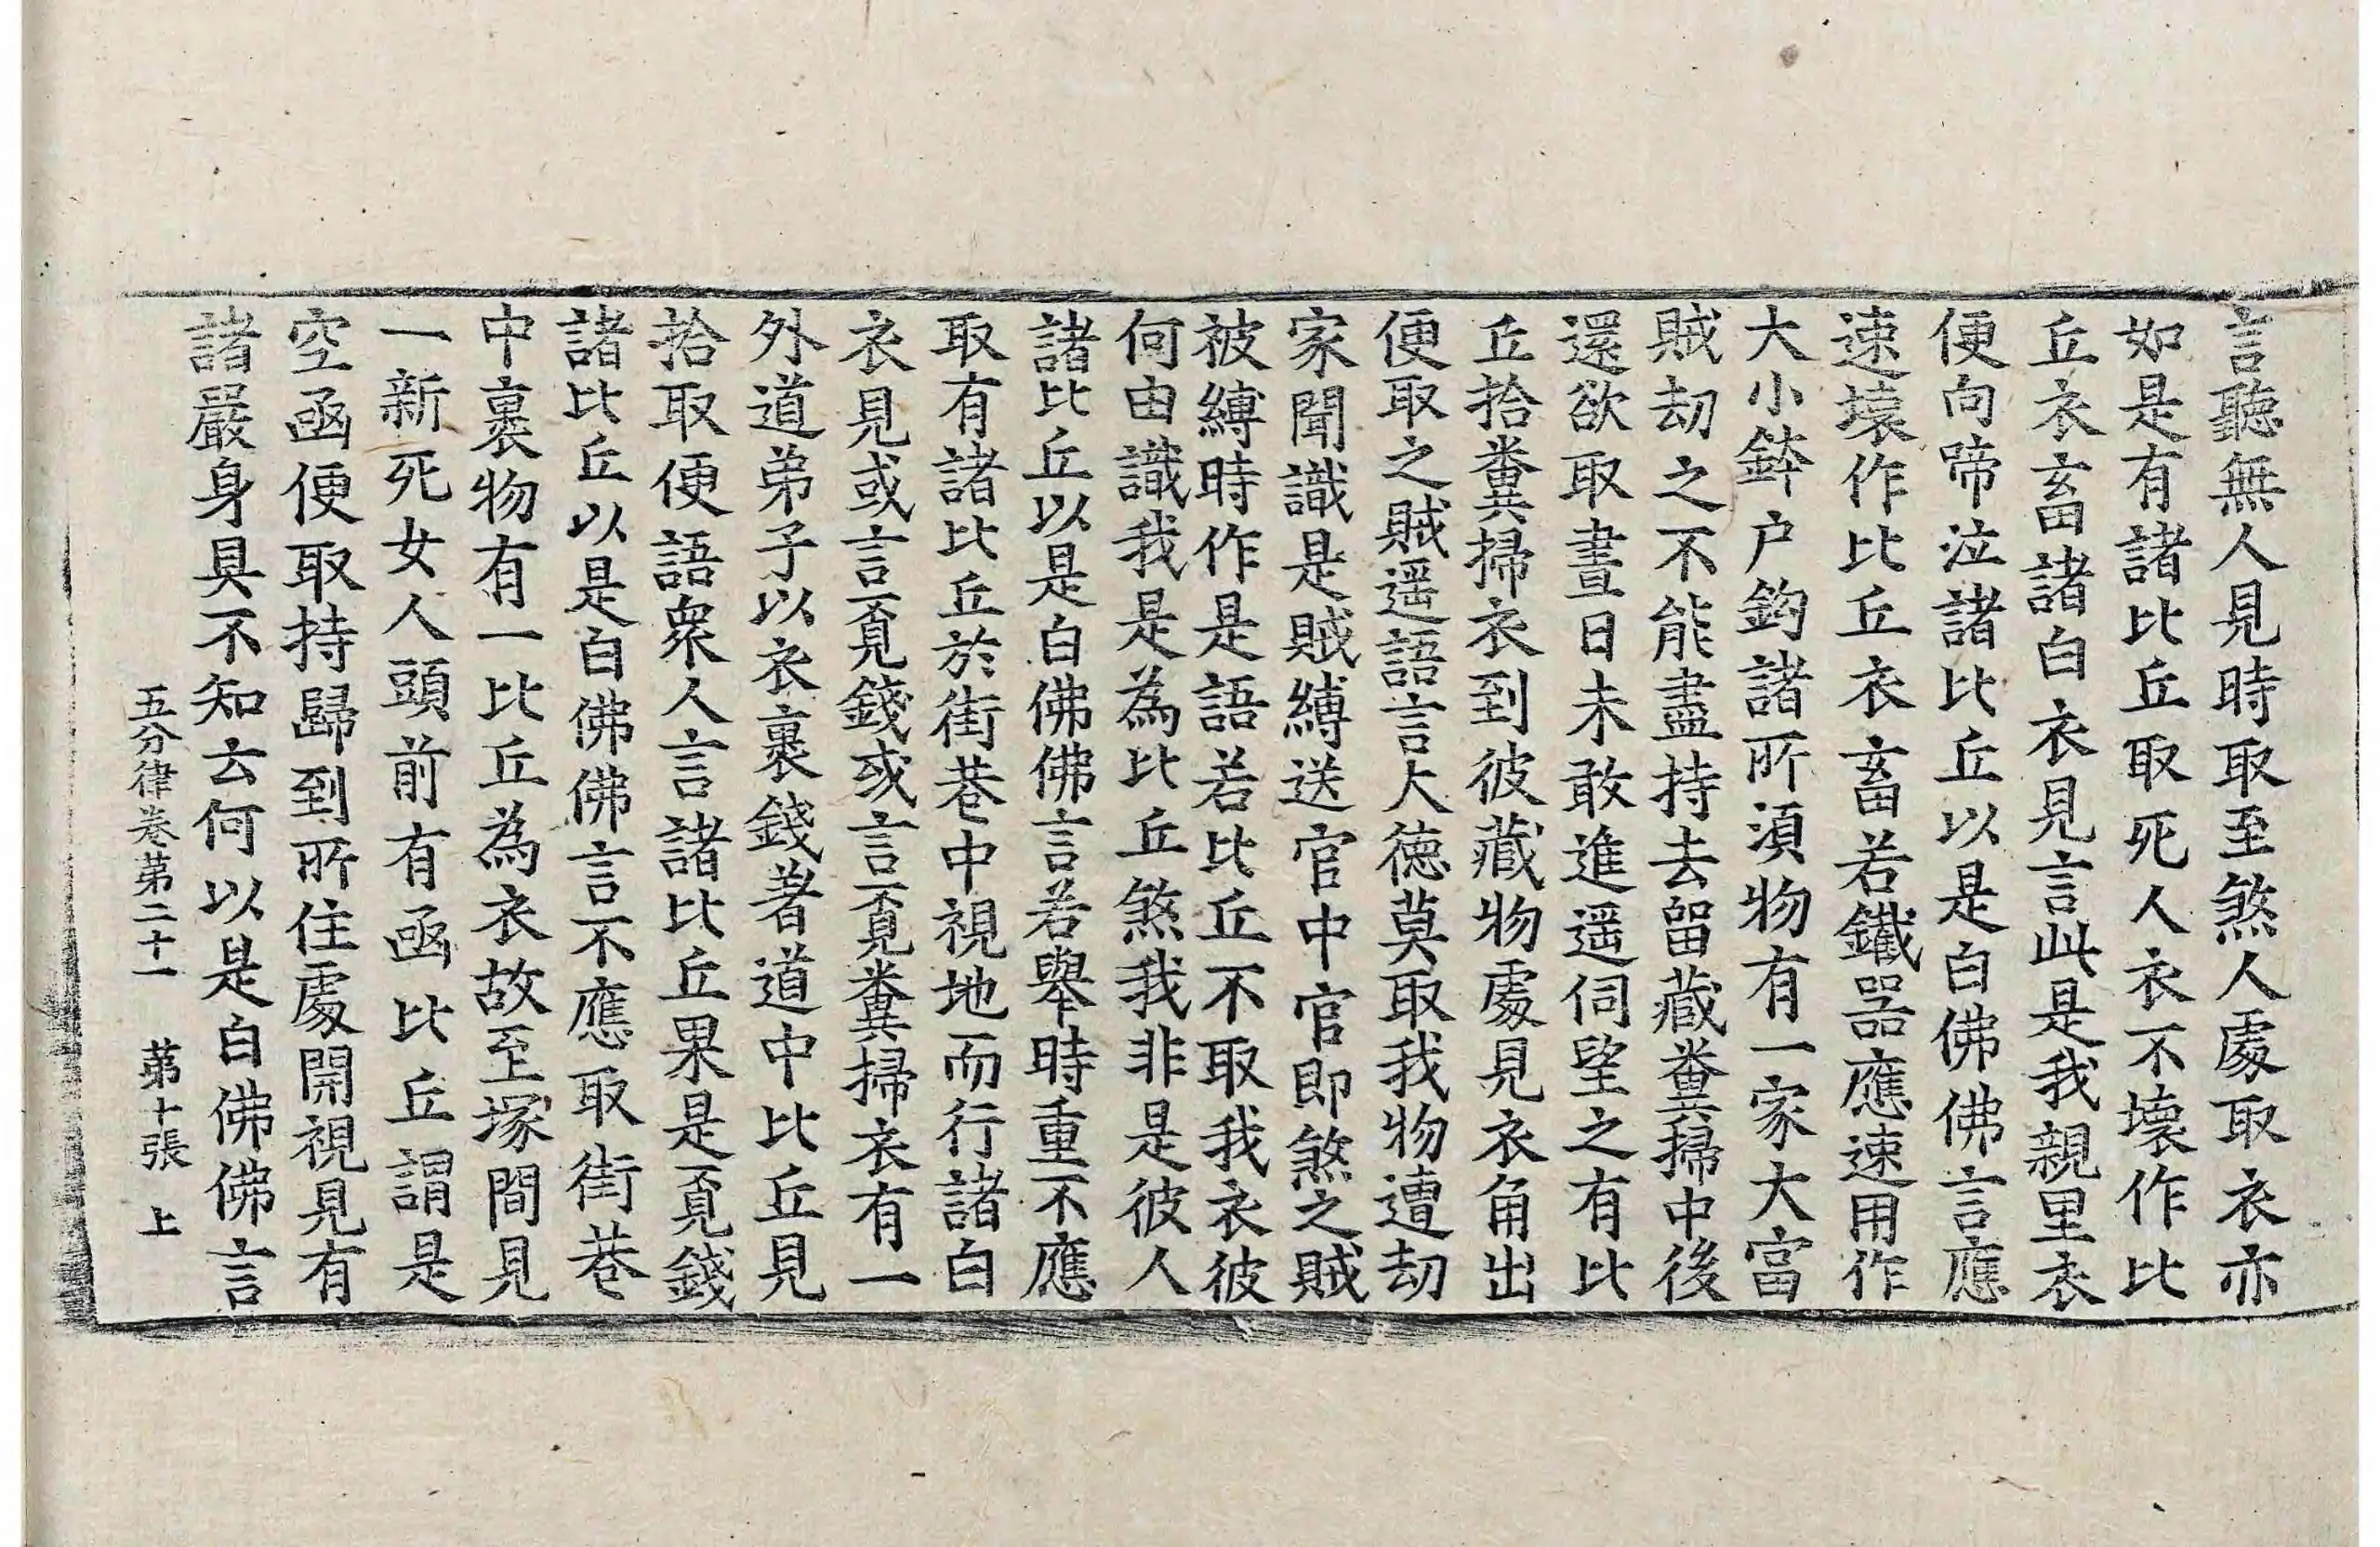 言聽無人見時取至煞人處取衣亦
如是有諸比丘取死人衣不壞作比
丘衣畜諸白衣見言此是我親里衣
便向啼泣諸比丘以是白佛佛言應
速壞作比丘衣畜若鐵器應速用作
大小鉢户鉤諸所湏物有一家大富
賊劫之不能盡持去留藏糞掃中後
還欲取晝日未敢進遥伺望之有比
丘拾糞掃衣到彼藏物處見衣角出
便取之賊遥語言大德莫取我物遭劫
家聞識是賊縛送官中官即煞之賊
被縛時作是語若比丘不取我衣彼
何由識我是為比丘煞我非是彼人
諸比丘以是白佛佛言若舉時重不應
取有諸比丘於街巷中視地而行諸白
衣見或言覓錢或言覓糞掃衣有一
外道弟子以衣裹錢著道中比丘見
拾取便語衆人言諸比丘果是覓錢
諸比丘以是白佛佛言不應取街巷
中裹物有一比丘為衣故至塚間見
一新死女人頭前有函比丘謂是
空函便取持歸到所住處開視見有
諸嚴身具不知云何以是白佛佛言
五分律卷第二十一 第十張 上